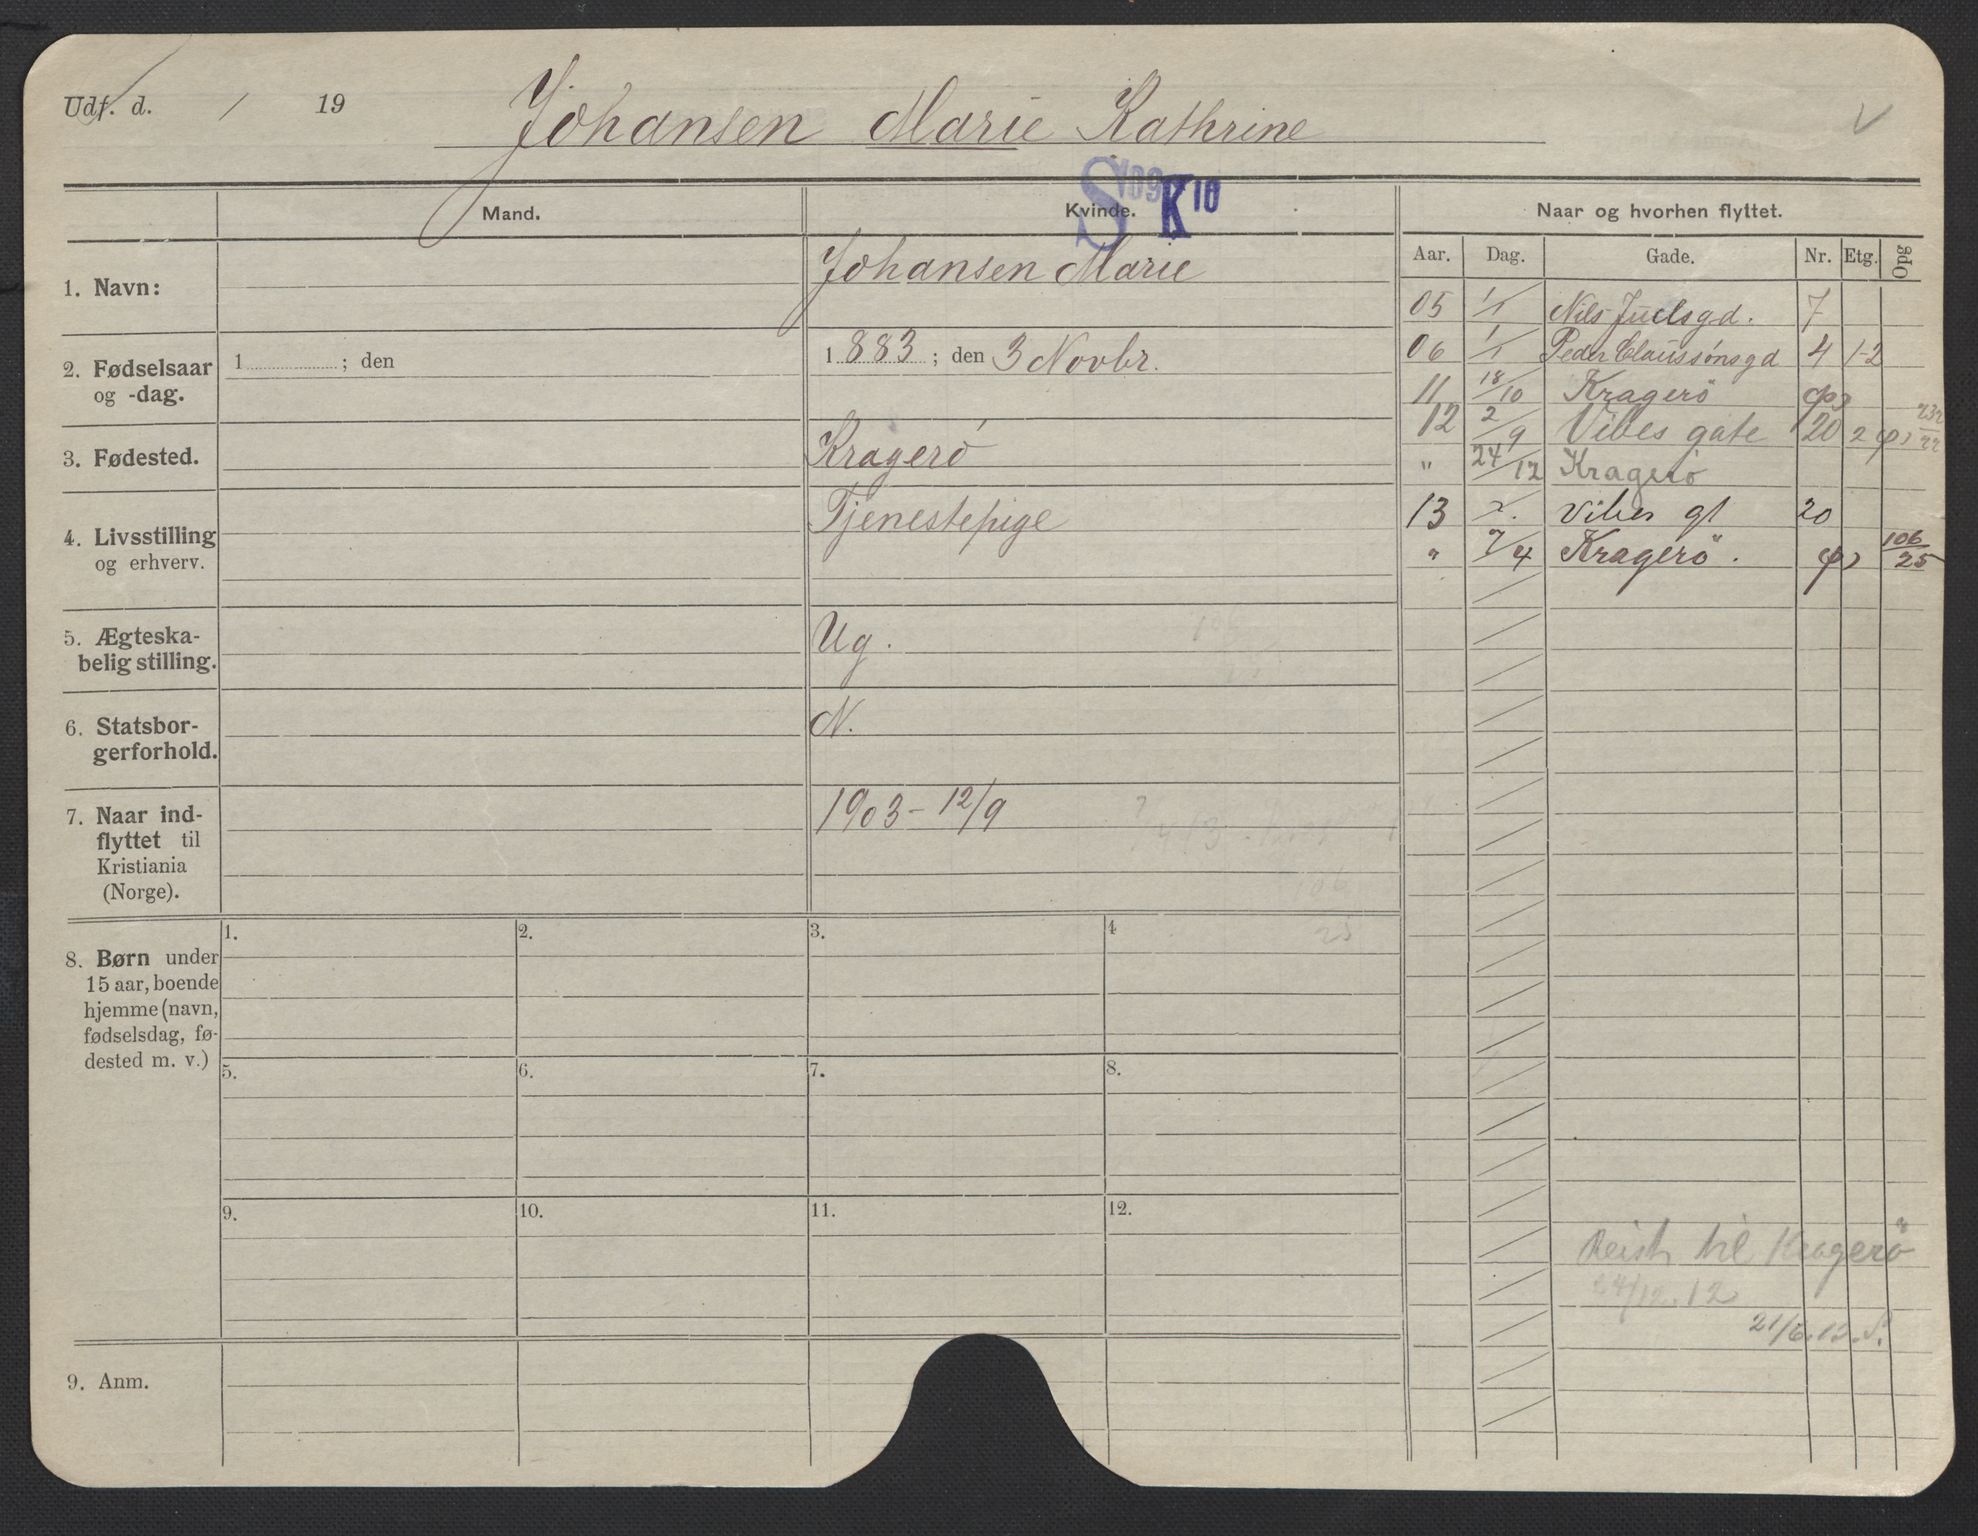 Udf. d. / 19
Johansen Marie Kathrine
S 09 K 10
Mand.
Kvinde.
Naar og hvorhen flyttet.
Aar. Dag. Gade. Nr. Etg. Opg
1. Navn:
Johansen Marie
2. Fødselsaar
og -dag.
1 ; den
1 883 ; den 3 Novbr.
3. Fødested.
Kragerø
4. Livsstilling
og erhverv.
Tjenestepige
5. Ægteska-
belig stilling.
Ug.
6. Statsbor-
gerforhold.
N.
7. Naar ind-
flyttet til
Kristiania
(Norge).
1903 - 12/9
05 1/1 Nils Juelsgd. 7
06 1/1 Peder Claussønsgd 4 1-2
11 18/10 Kragerö
12 2/9 Vibes gate 20 2
" 24/12 Kragerø
13 Vibes gt 20
" 7/4 Kragerö. 106/25
8. Børn under
15 aar, boende
hjemme (navn,
fødselsdag, fø-
dested m. v.)
1. 2. 3. 4
5. 6. 7. 8.
9. 10. 11. 12.
9. Anm.
Reist til Kragerö
24/12.12
21/6.13.S.